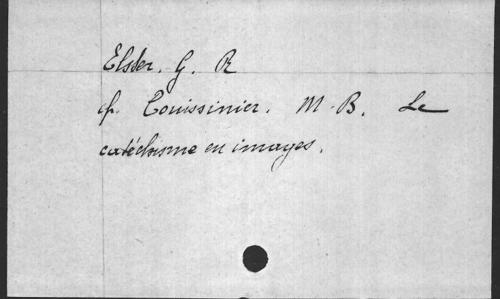 Elster. G. R
cf. Couissinier. M-B. Le
catéchisme en images.